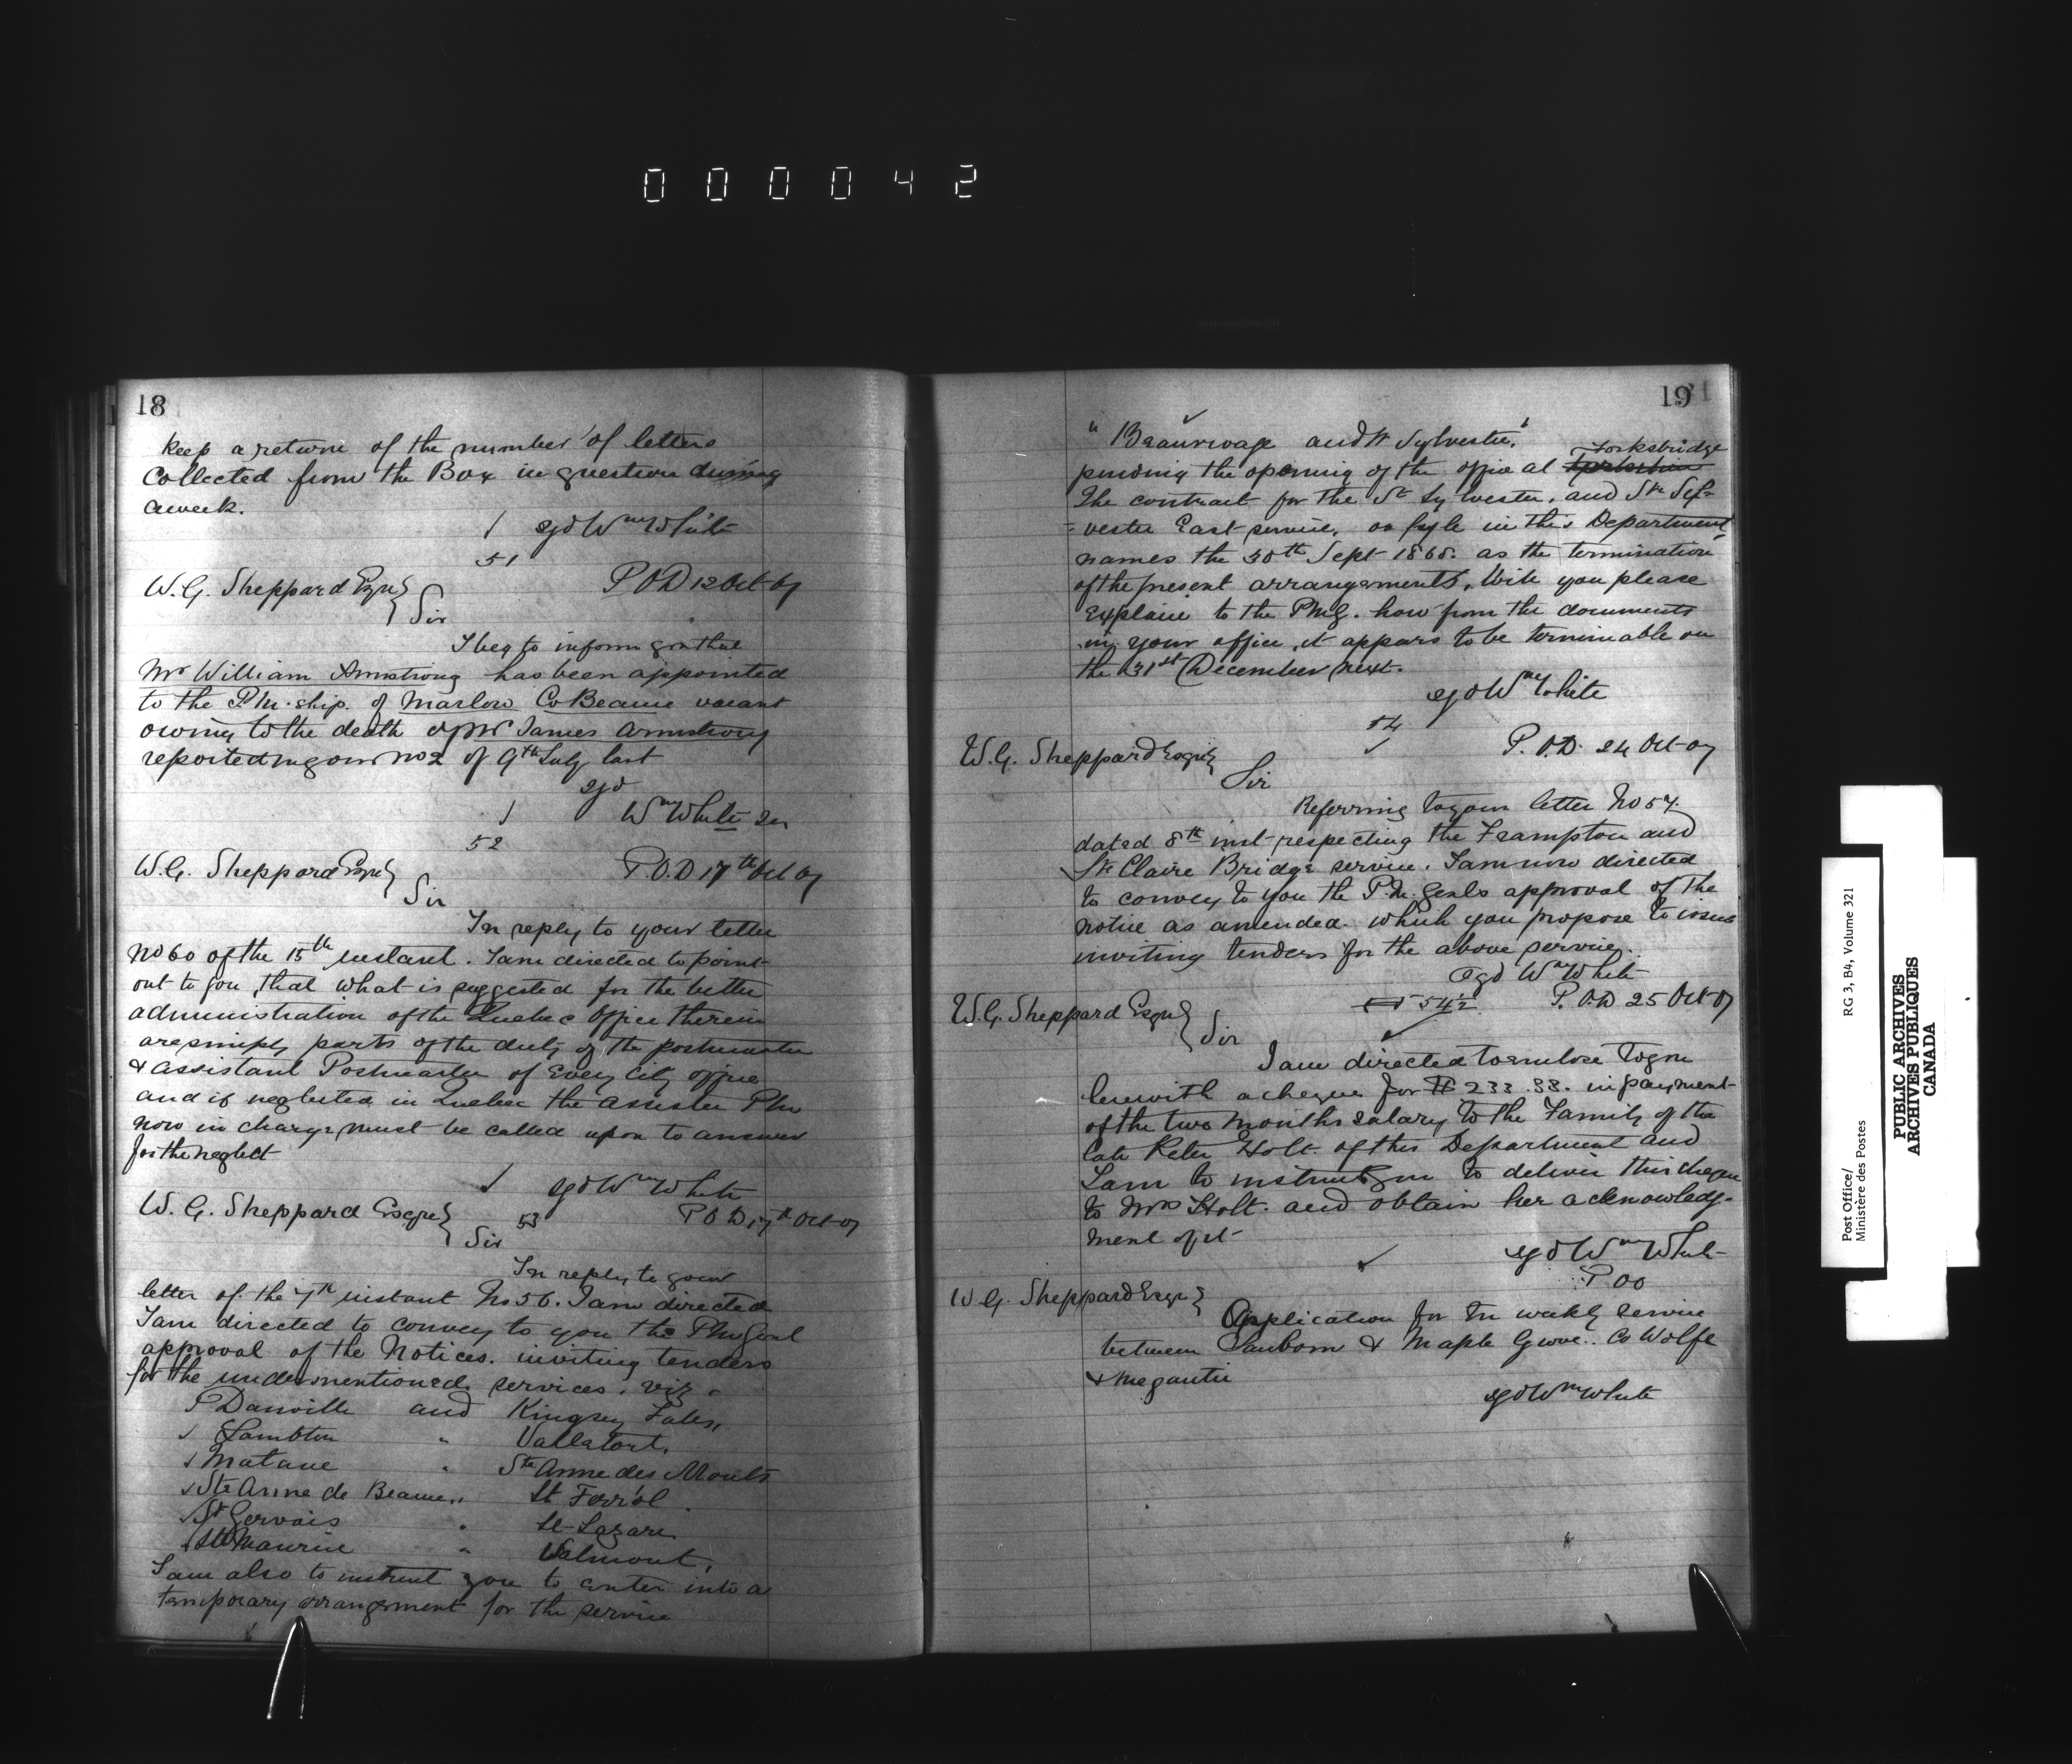 000042
18
keep a return of the number of letters
collected from the Box in question during
a week.
sgd Wm White
51
W. G. Sheppard Esqre
P O D 12 Oct 67
Sir
I beg to inform you that
Mr William Armstrong has been appointed
to the P M. ship. of Marlow Co Beauce vacant
owing to the death of Mr James Armstrong
reported in your No 2 of 9th July last
sgd
Wm White
52
W. G. Sheppard Esqre
P.O.D 17th Oct 67
Sir
In reply to your letter
No 60 of the 15th instant. I am directed to point
out to you, that what is suggested for the better
administration of the Quebec Office therein
are simply parts of the duty of the postmaster
& assistant Postmaster of Every City office
and if neglected in Quebec the assister PM
now in charge must be called upon to answer
for the neglect
sgd Wm White
W. G. Sheppard Esqre
53
P O D 17th Oct 67
Sir
In reply to your
letter of the 7th instant No 56. I am directed
I am directed to convey to you the PMGenl
approval of the Notices. inviting tenders
for the undermentioned services. viz.
Danville and Kingsey Falls,
Lambton " Vallatort.
Matane " Ste Anne des Monts
Ste Anne de Beaume " St Ferriol
St Gervais " St Lazare
St Maurice " Valmont.
I am also to instruct you to enter into a
temporary arrangement for the service
19
" Beaurivage and St Sylvestre."
Yorksbridge
pending the opening of the office at
The contract for the St Sylvester. and Ste Syl=
=vester East service. on fyle in this Department
names the 30th Sept 1868. as the termination
of the present arrangements. Will you please
explain to the PMG. how from the documents
in your office, it appears to be terminable on
the 31st December next.
sgd Wm White
54
W. G. Sheppard Esqre
P. O.D. 24 Oct 67
Sir
Referring to your letter No 57.
dated 8th inst respecting the Frampton and
Ste Claire Bridge service. I am now directed
to convey to you the P.M. Genls approval of the
notice as amended. which you propose to issue
inviting tenders for the above service.
sgd Wm White
W. G. Sheppard Esqre
54½
P. O.D 25 Oct 67
Sir
I am directed to enclose to you
herewith a cheque for $ 233.33. in payment
of the two months salary to the Family of the
late Peter Holt. of this Department and
I am to instruct you to deliver this cheque
to Mrs Holt. and obtain her acknowledg-
ment of it
sgd Wm White
W. G. Sheppard Esqre
Application for Tri weekly service
between Sanborn & Maple Grove. Co Wolfe
& Megantic
sgd Wm White
Post Office/
Ministère des Postes
RG 3, B4, Volume 321
PUBLIC ARCHIVES
ARCHIVES PUBLIQUES
CANADA